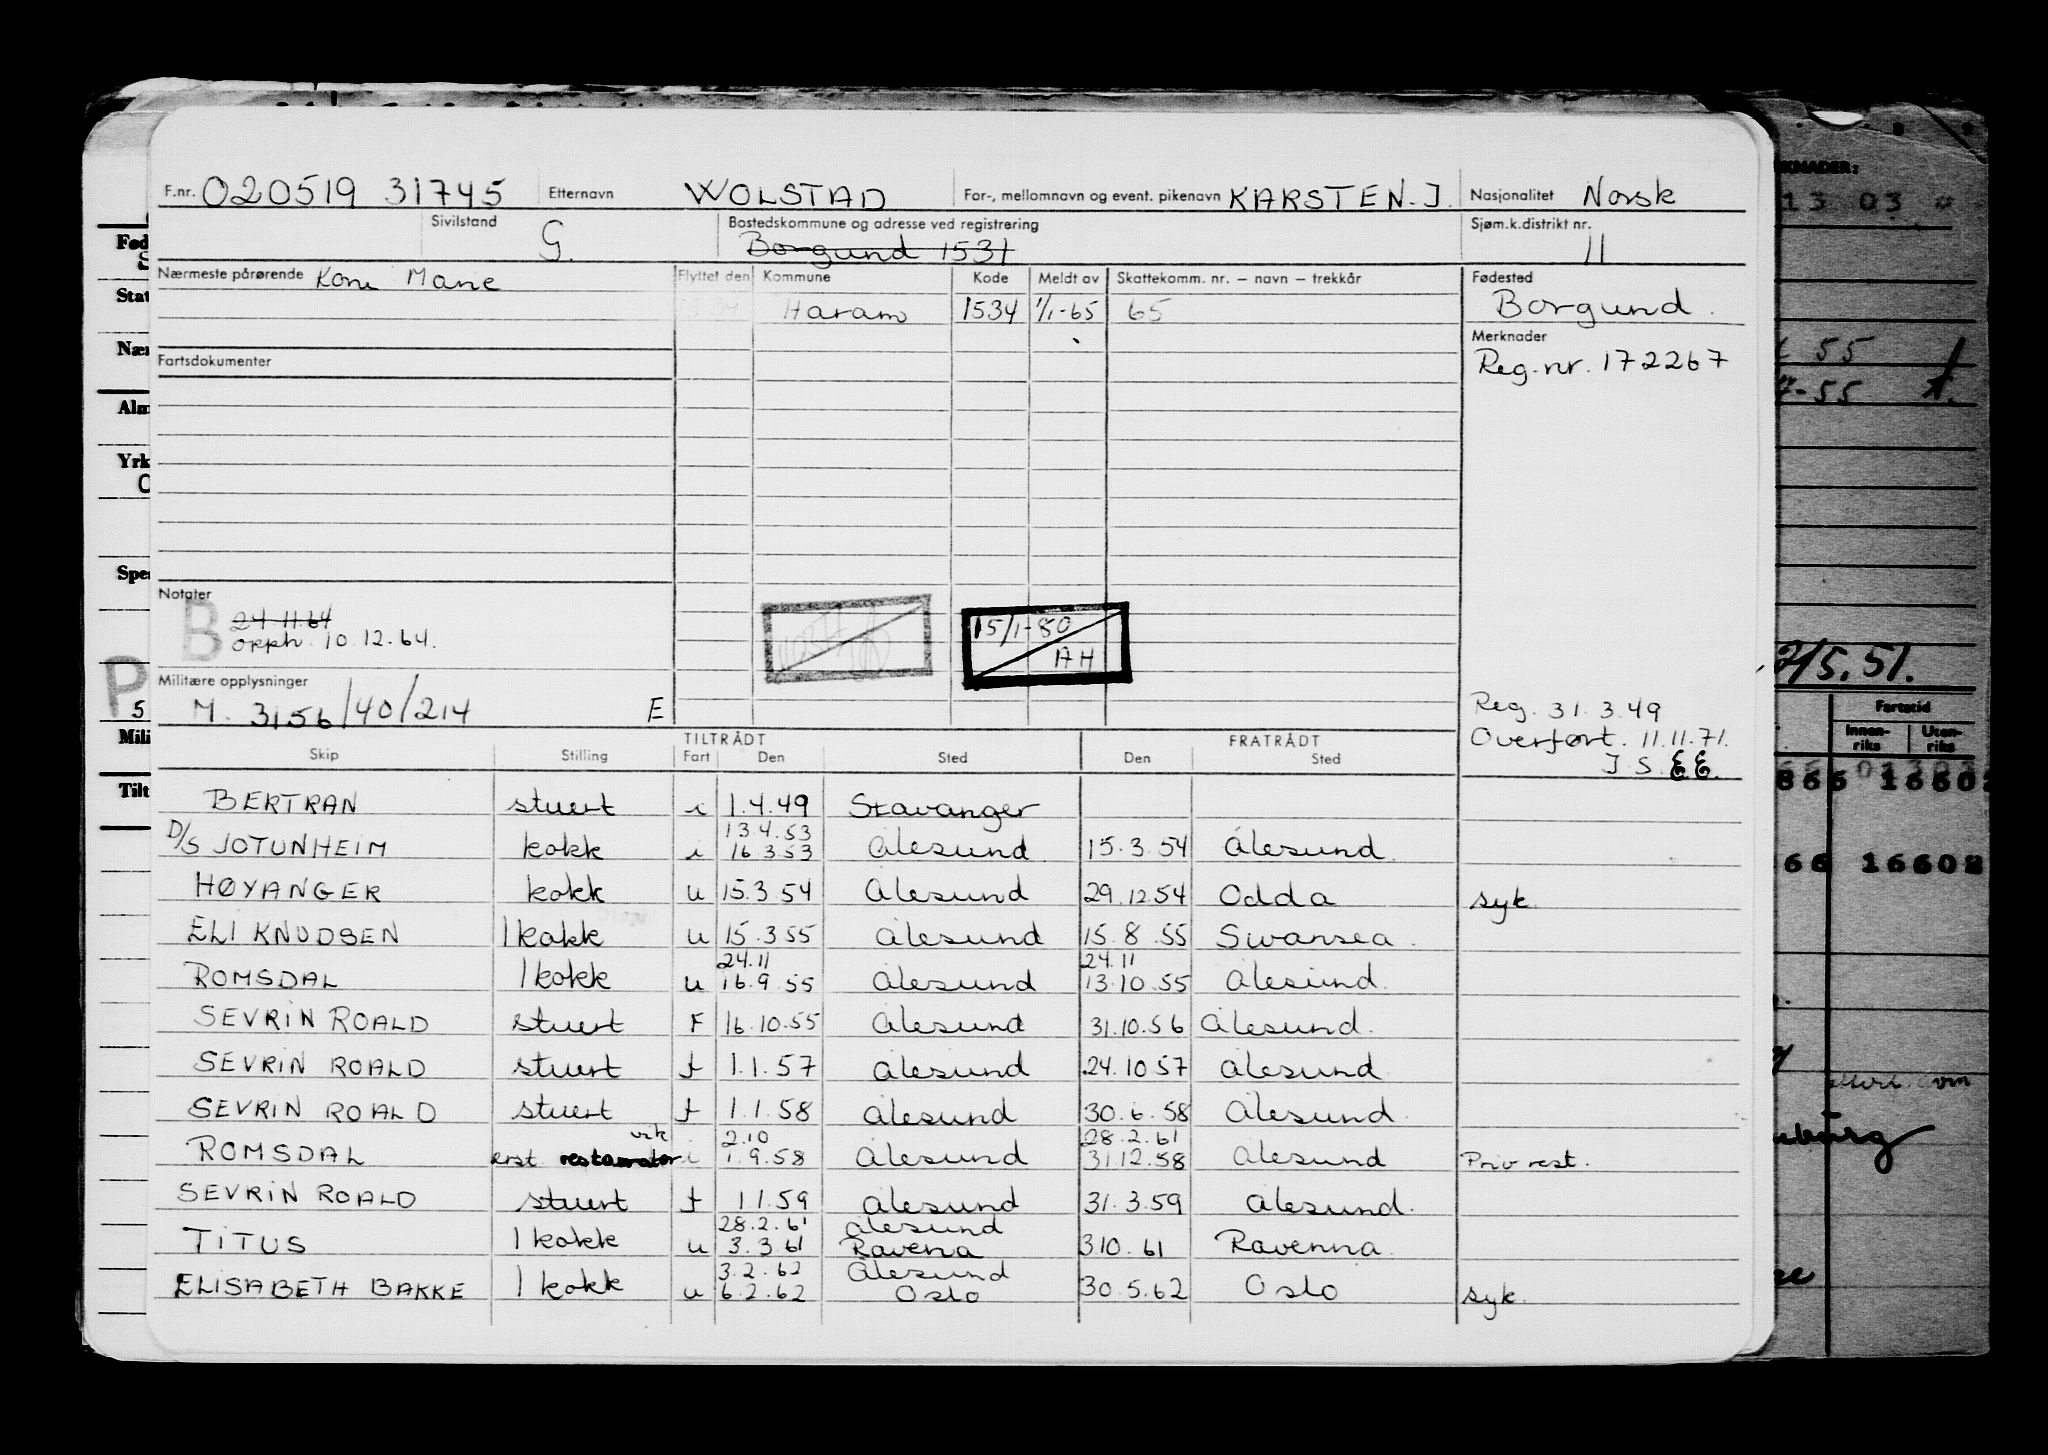 F.nr. 020519 31745 Etternavn WOLSTAD For-, mellomnavn og event. pikenavn KARSTEN. J. Nasjonalitet Norsk
Sivilstand G. Bostedskommune og adresse ved registrering Borgund 1531 Sjøm.k.distrikt nr. 11
Nærmeste pårørende Kone Marie Flyttet den Kommune Kode Meldt av Skattekomm. nr. – navn – trekkår Fødested
Haram 1534 1/1-65 65 Borgund.
Merknader
Fartsdokumenter Reg.nr. 172267
Notater
B 24.11.64
opph. 10.12.64.
15/1-80
AH
Militære opplysninger
M. 3156/40/214 E
Reg. 31.3.49
Overført. 11.11.71.
J S. E E.
TILTRÅDT FRATRÅDT
Skip Stilling Fart Den Sted Den Sted
BERTRAN stuert i 1.4.49 Stavanger
13.4.53
D/S JOTUNHEIM kokk i 16.3.53 Ålesund 15.3.54 Ålesund
HØYANGER kokk u 15.3.54 Ålesund 29.12.54 Odda syk.
ELI KNUDSEN 1 kokk u 15.3.55 Ålesund 15.8.55 Swansea.
24.11 24.11
ROMSDAL 1 kokk u 16.9.55 Ålesund 13.10.55 Ålesund.
SEVRIN ROALD stuert F 16.10.55 Ålesund 31.10.56 Ålesund.
SEVRIN ROALD stuert f 1.1.57 Ålesund 24.10.57 Ålesund
SEVRIN ROALD stuert f 1.1.58 Ålesund 30.6.58 Ålesund.
2.10 28.2.61
ROMSDAL restaurator i 1.9.58 Ålesund 31.12.58 Ålesund Priv rest.
SEVRIN ROALD stuert f 1.1.59 Ålesund 31.3.59 Ålesund.
28.2.61 Ålesund
TITUS 1 kokk u 3.3.61 Ravena 3.10.61 Ravenna.
3.2.62 Ålesund
ELISABETH BAKKE 1 kokk u 6.2.62 Oslo 30.5.62 Oslo syk.
Fød
Stat
Nær
Alm
Yrk
Spe
P
5
Mili
Tilt
KNADER:
13 03
55
-55
2/5.51.
Fartstid
Innen-
riks
Uten-
riks